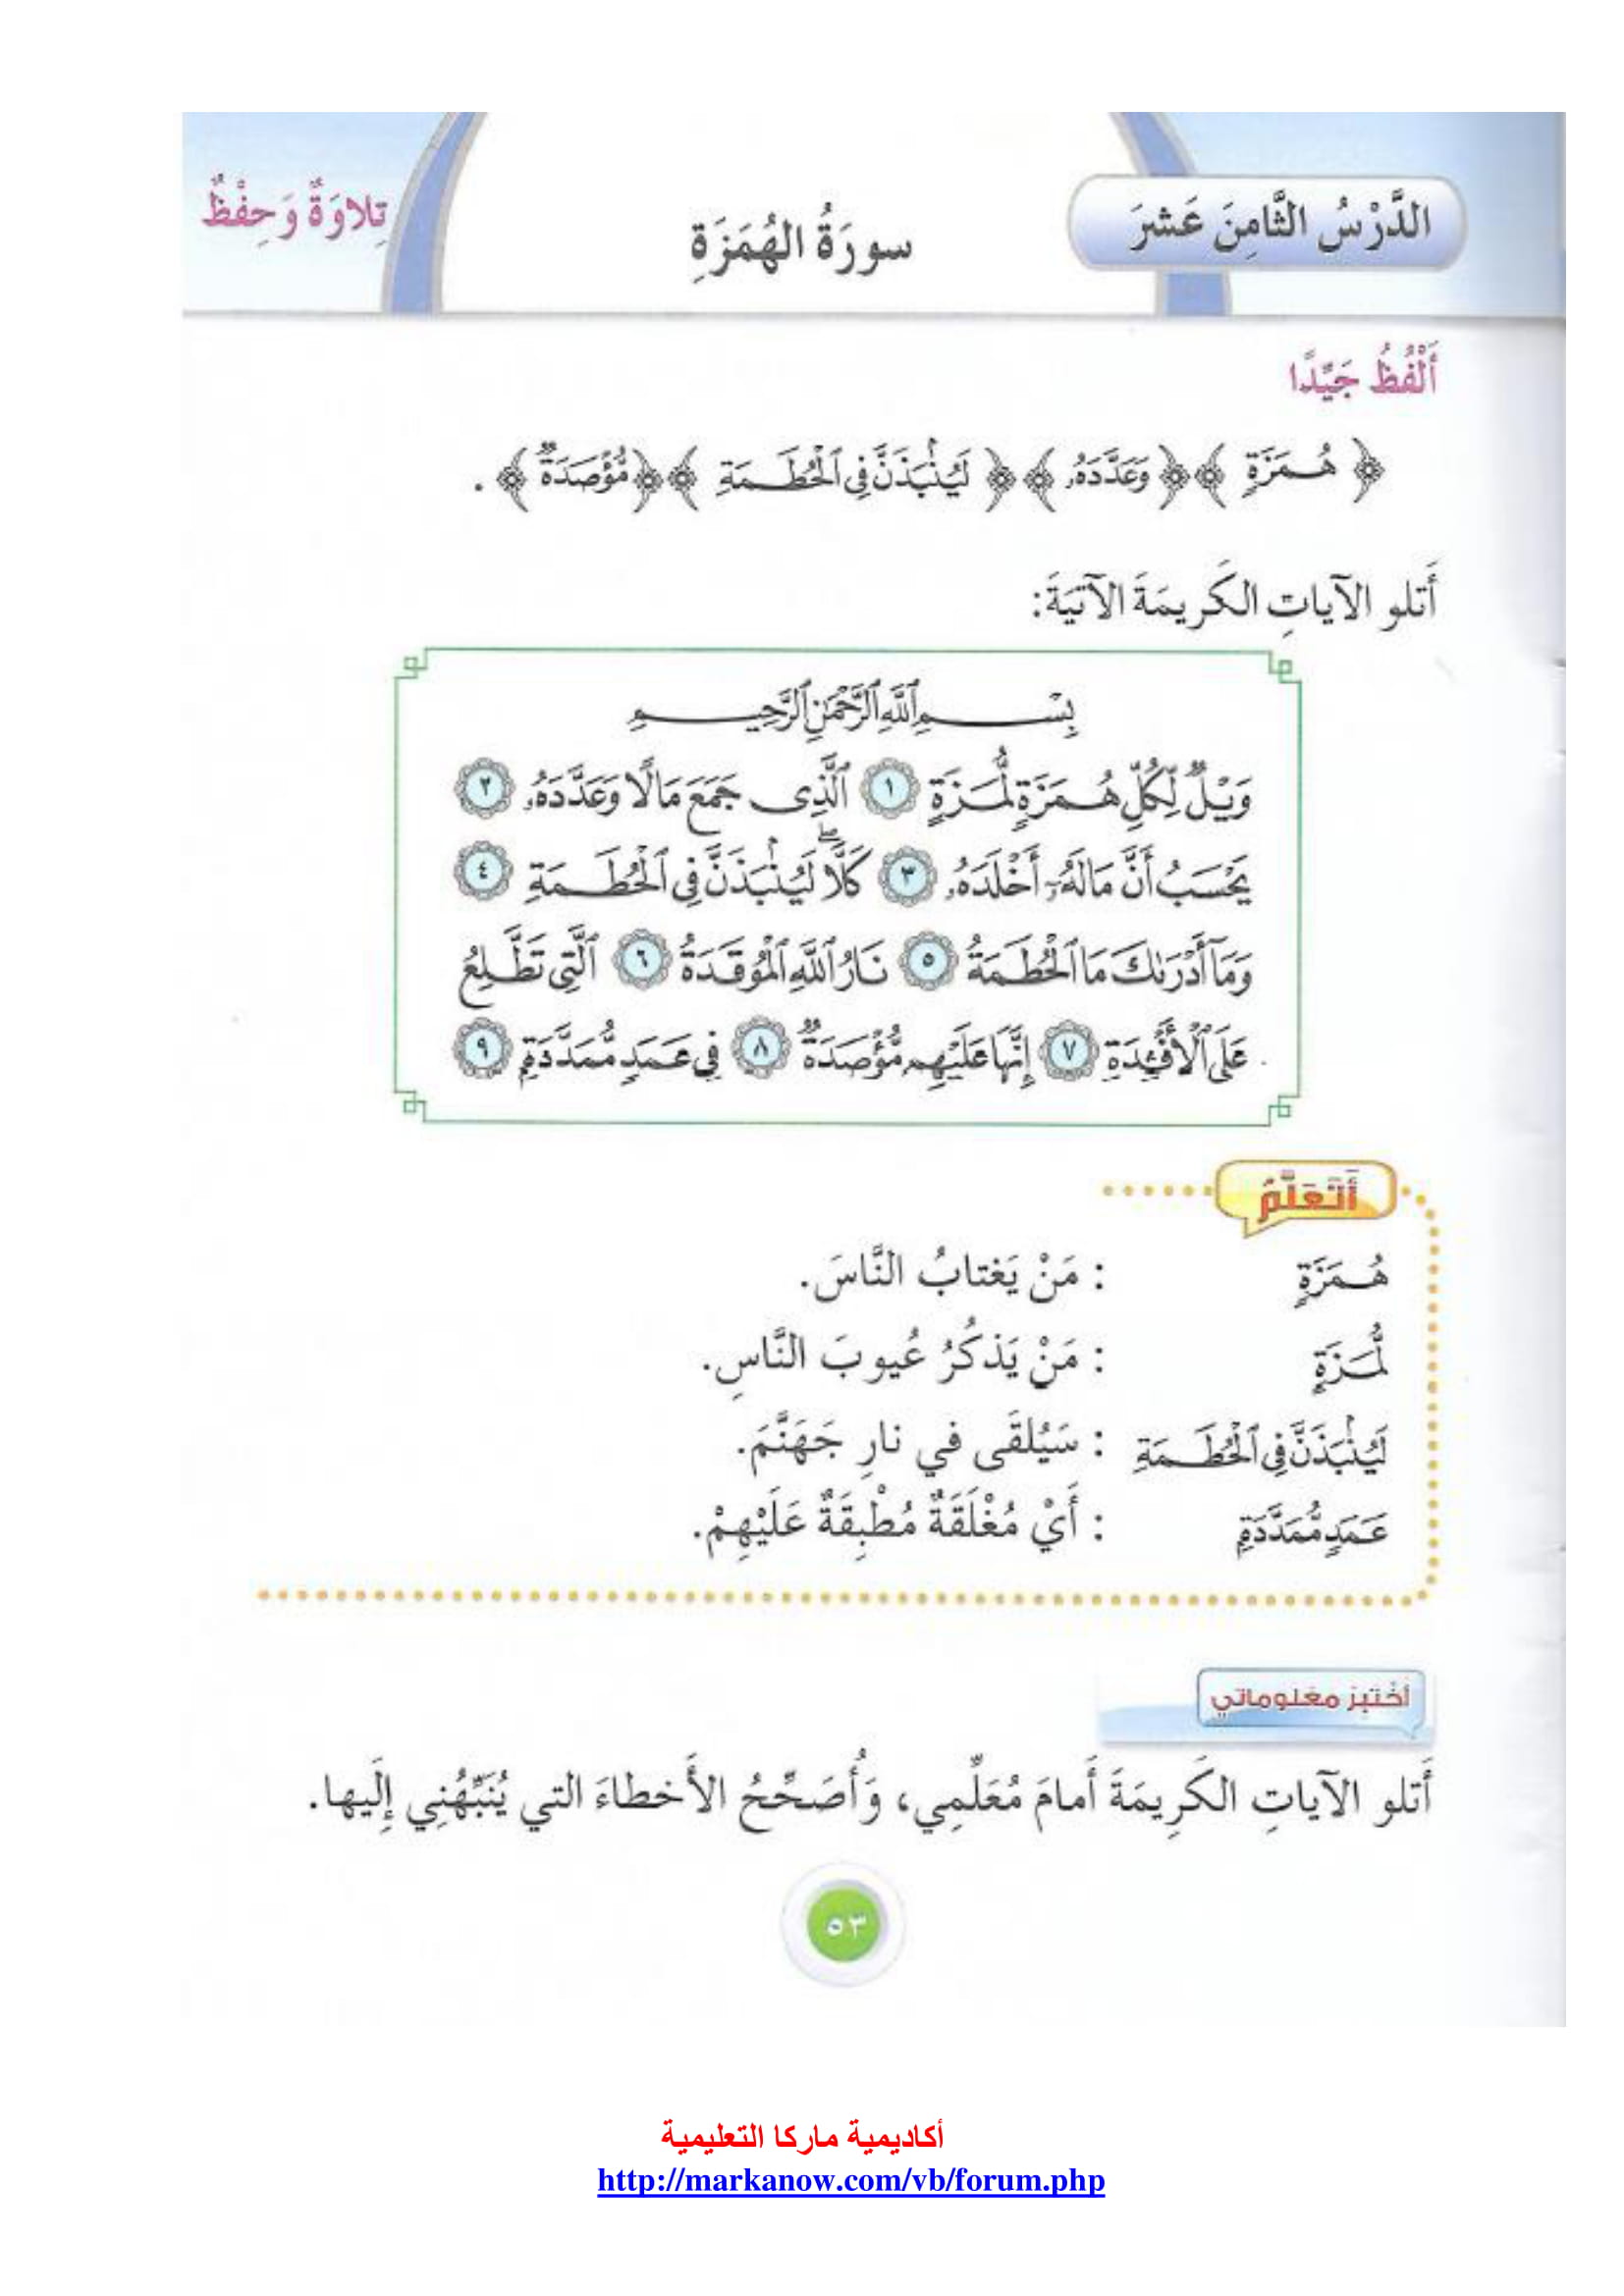 الدَّرْسُ الثَّامِنَ عَشَرَ
سورَةُ الهُمَزَةِ
تِلاوَةٌ وَحِفْظٌ
أَلْفُظُ جَيِّدًا
﴿ هُمَزَةٍ ﴾ ﴿ وَعَدَّدَهُۥ ﴾ ﴿ لَيُنۢبَذَنَّ فِي ٱلْحُطَمَةِ ﴾ ﴿ مُّؤْصَدَةٌ ﴾ .
أَتلو الآياتِ الكَريمَةَ الآتيَةَ:
بِسْمِ ٱللَّهِ ٱلرَّحْمَٰنِ ٱلرَّحِيمِ
وَيْلٌ لِّكُلِّ هُمَزَةٍ لُّمَزَةٍ ١ ٱلَّذِى جَمَعَ مَالًا وَعَدَّدَهُۥ ٢
يَحْسَبُ أَنَّ مَالَهُۥٓ أَخْلَدَهُۥ ٣ كَلَّا ۖ لَيُنۢبَذَنَّ فِى ٱلْحُطَمَةِ ٤
وَمَآ أَدْرَىٰكَ مَا ٱلْحُطَمَةُ ٥ نَارُ ٱللَّهِ ٱلْمُوقَدَةُ ٦ ٱلَّتِى تَطَّلِعُ
عَلَى ٱلْأَفْـِٔدَةِ ٧ إِنَّهَا عَلَيْهِم مُّؤْصَدَةٌ ٨ فِى عَمَدٍ مُّمَدَّدَةٍۭ ٩
أَتَعَلَّمُ
هُمَزَةٍ : مَنْ يَغتابُ النَّاسَ.
لُّمَزَةٍ : مَنْ يَذكُرُ عُيوبَ النَّاسِ.
لَيُنۢبَذَنَّ فِي ٱلْحُطَمَةِ : سَيُلقَى في نارِ جَهَنَّمَ.
عَمَدٍ مُّمَدَّدَةٍۭ : أَيْ مُغْلَقَةٌ مُطْبِقَةٌ عَلَيْهِمْ.
أَختبِرُ معلوماتي
أَتلو الآياتِ الكَرِيمَةَ أَمامَ مُعَلِّمِي، وَأُصَحِّحُ الأَخطاءَ التي يُنَبِّهُنِي إِلَيها.
٥٣
أكاديمية ماركا التعليمية
http://markanow.com/vb/forum.php